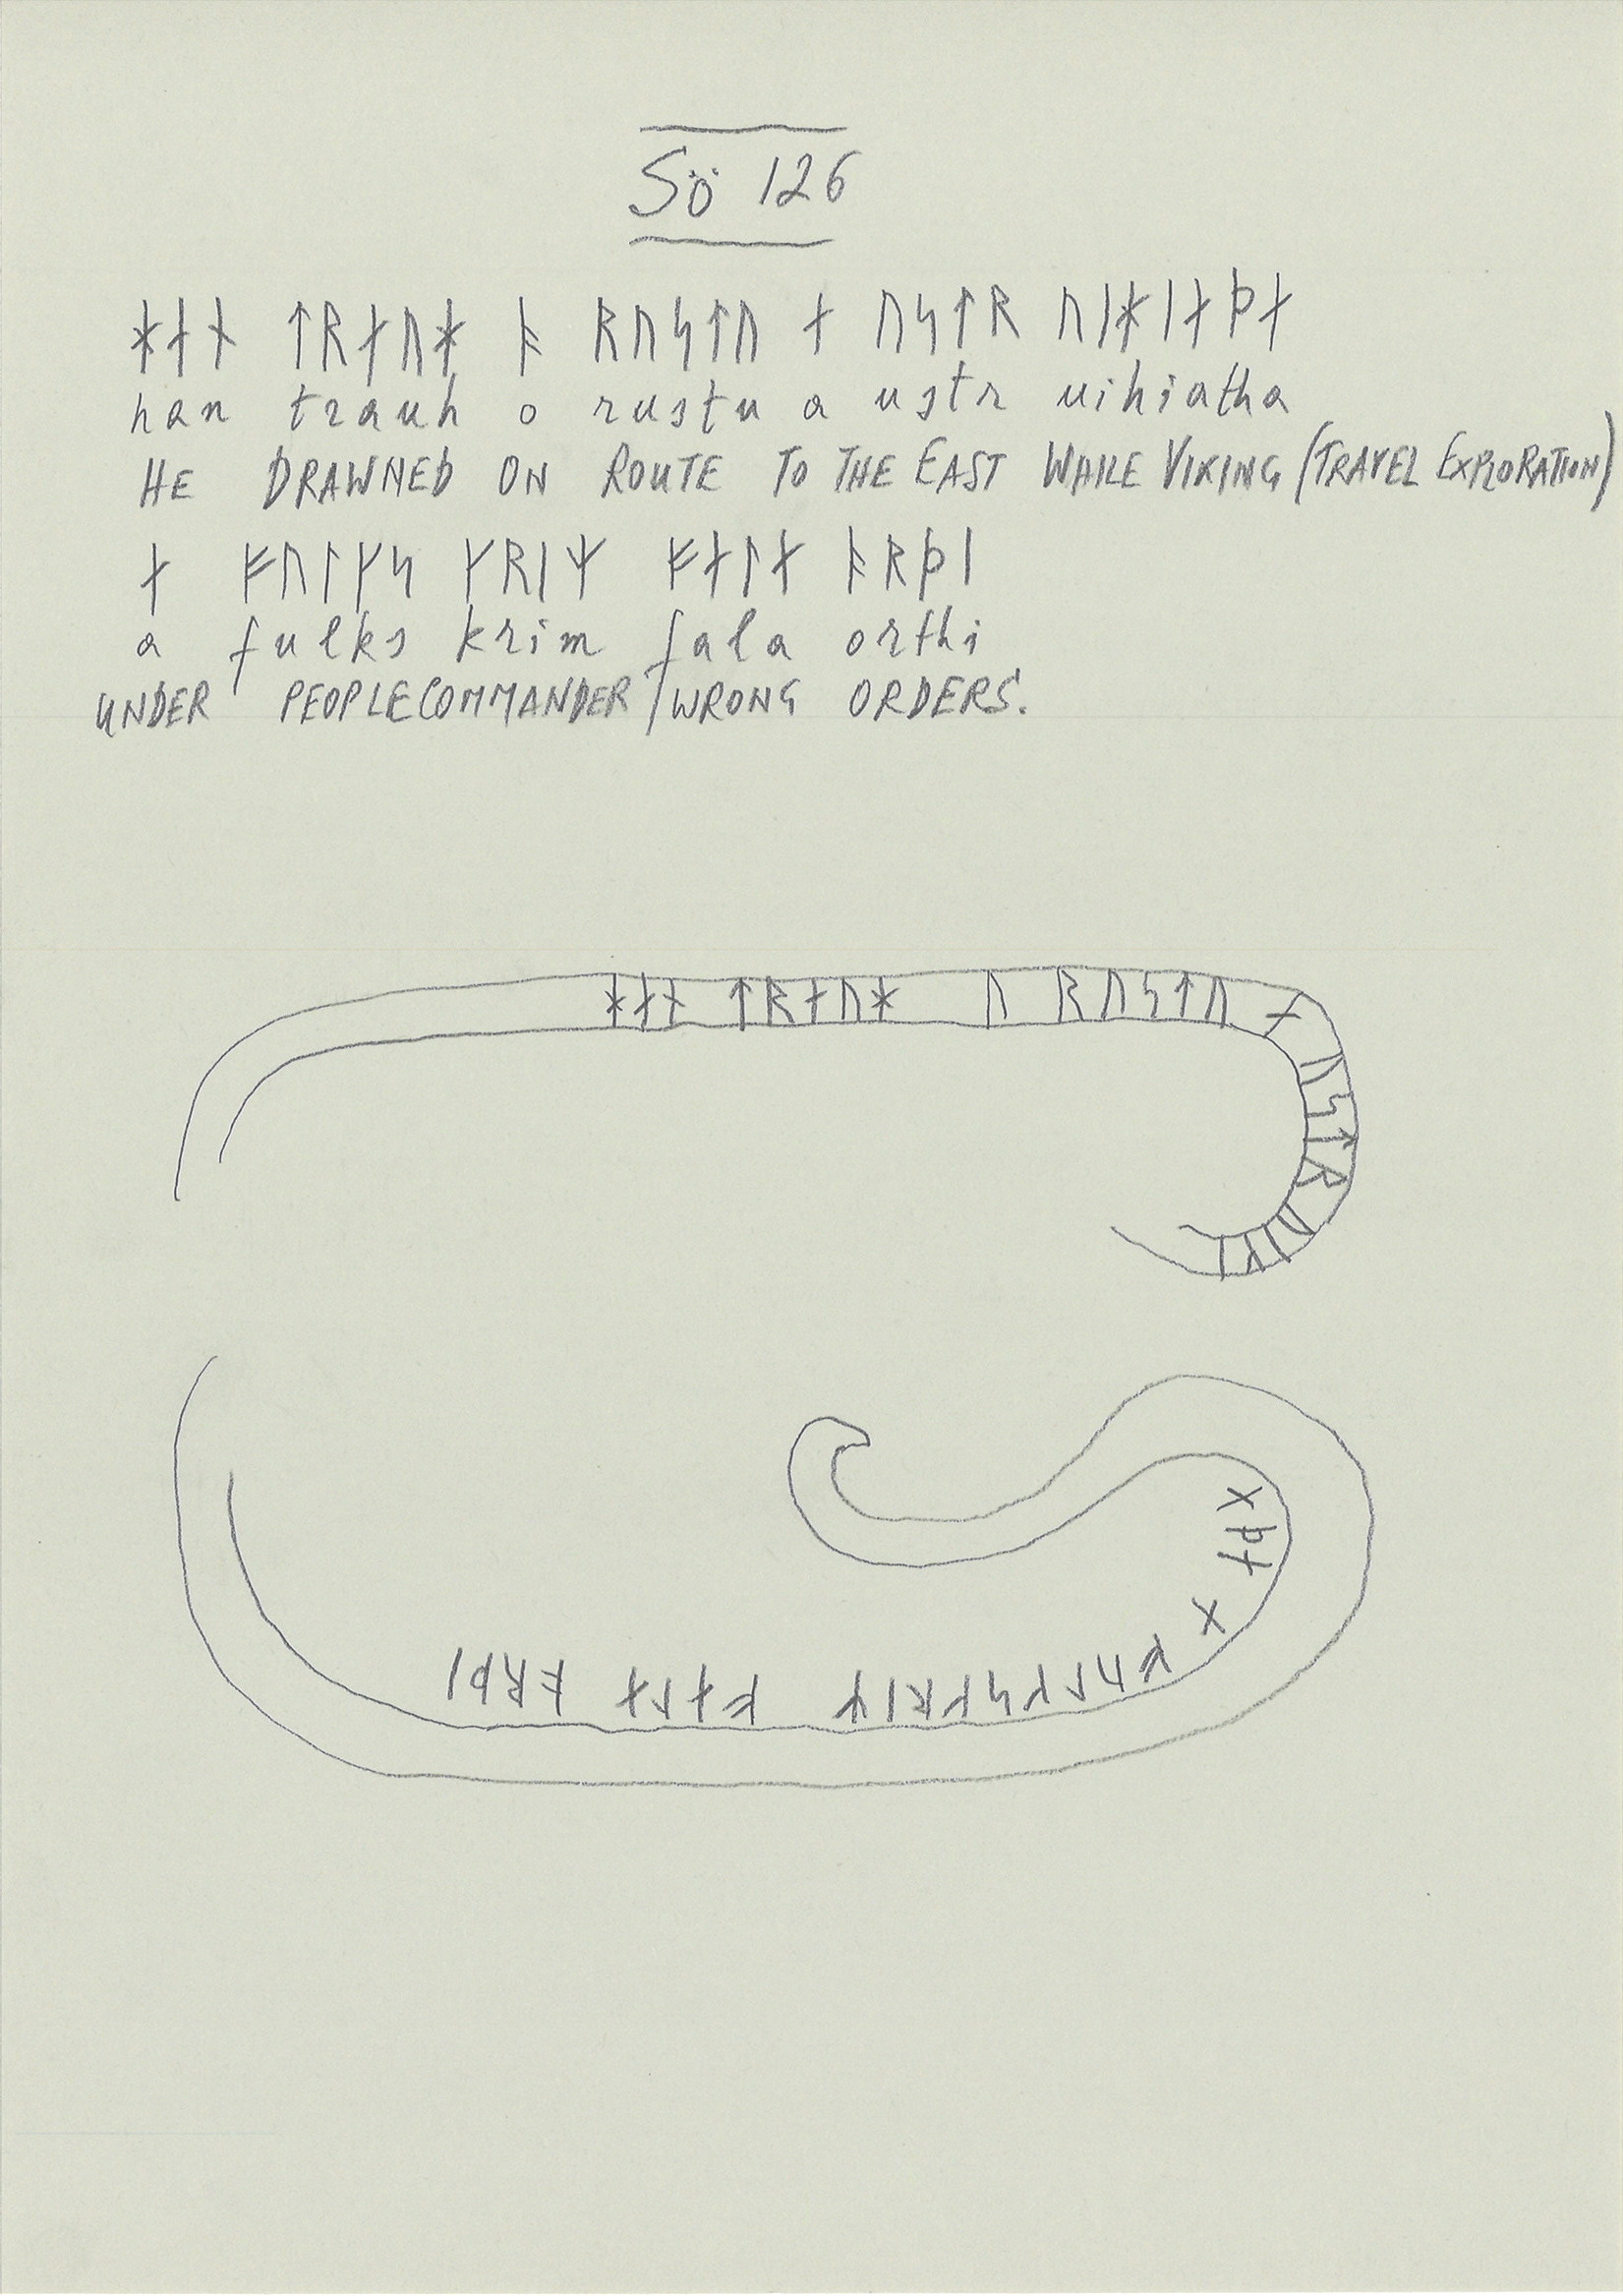 Sö 126
ᚼᛅᚾ ᛏᚱᛅᚢᚼ ᚬ ᚱᚢᛋᛏᚢ ᛅ ᚢᛋᛏᚱ ᚢᛁᚼᛁᛅᚦᛅ
han trauh o rustu a ustr uihiatha
HE DRAWNED ON ROUTE TO THE EAST WHILE VIKING (TRAVEL EXPLORATION)
ᛅ ᚠᚢᛚᚴᛋ ᚴᚱᛁᛘ ᚠᛅᛚᛅ ᚬᚱᚦᛁ
a fulks krim fala orthi
UNDER PEOPLECOMMANDER / WRONG ORDERS.
ᚼᛅᚾ ᛏᚱᛅᚢᚼ ᚢ ᚱᚢᛋᛏᚢ ᛅ ᚢᛋᛏᚱ ᚢᛁᚴᛁ
ᛅᚦᛅ ᛅ ᚠᚢᛚᚴᛋᚴᚱᛁᛘ ᚠᛅᛚᛅ ᚬᚱᚦᛁ